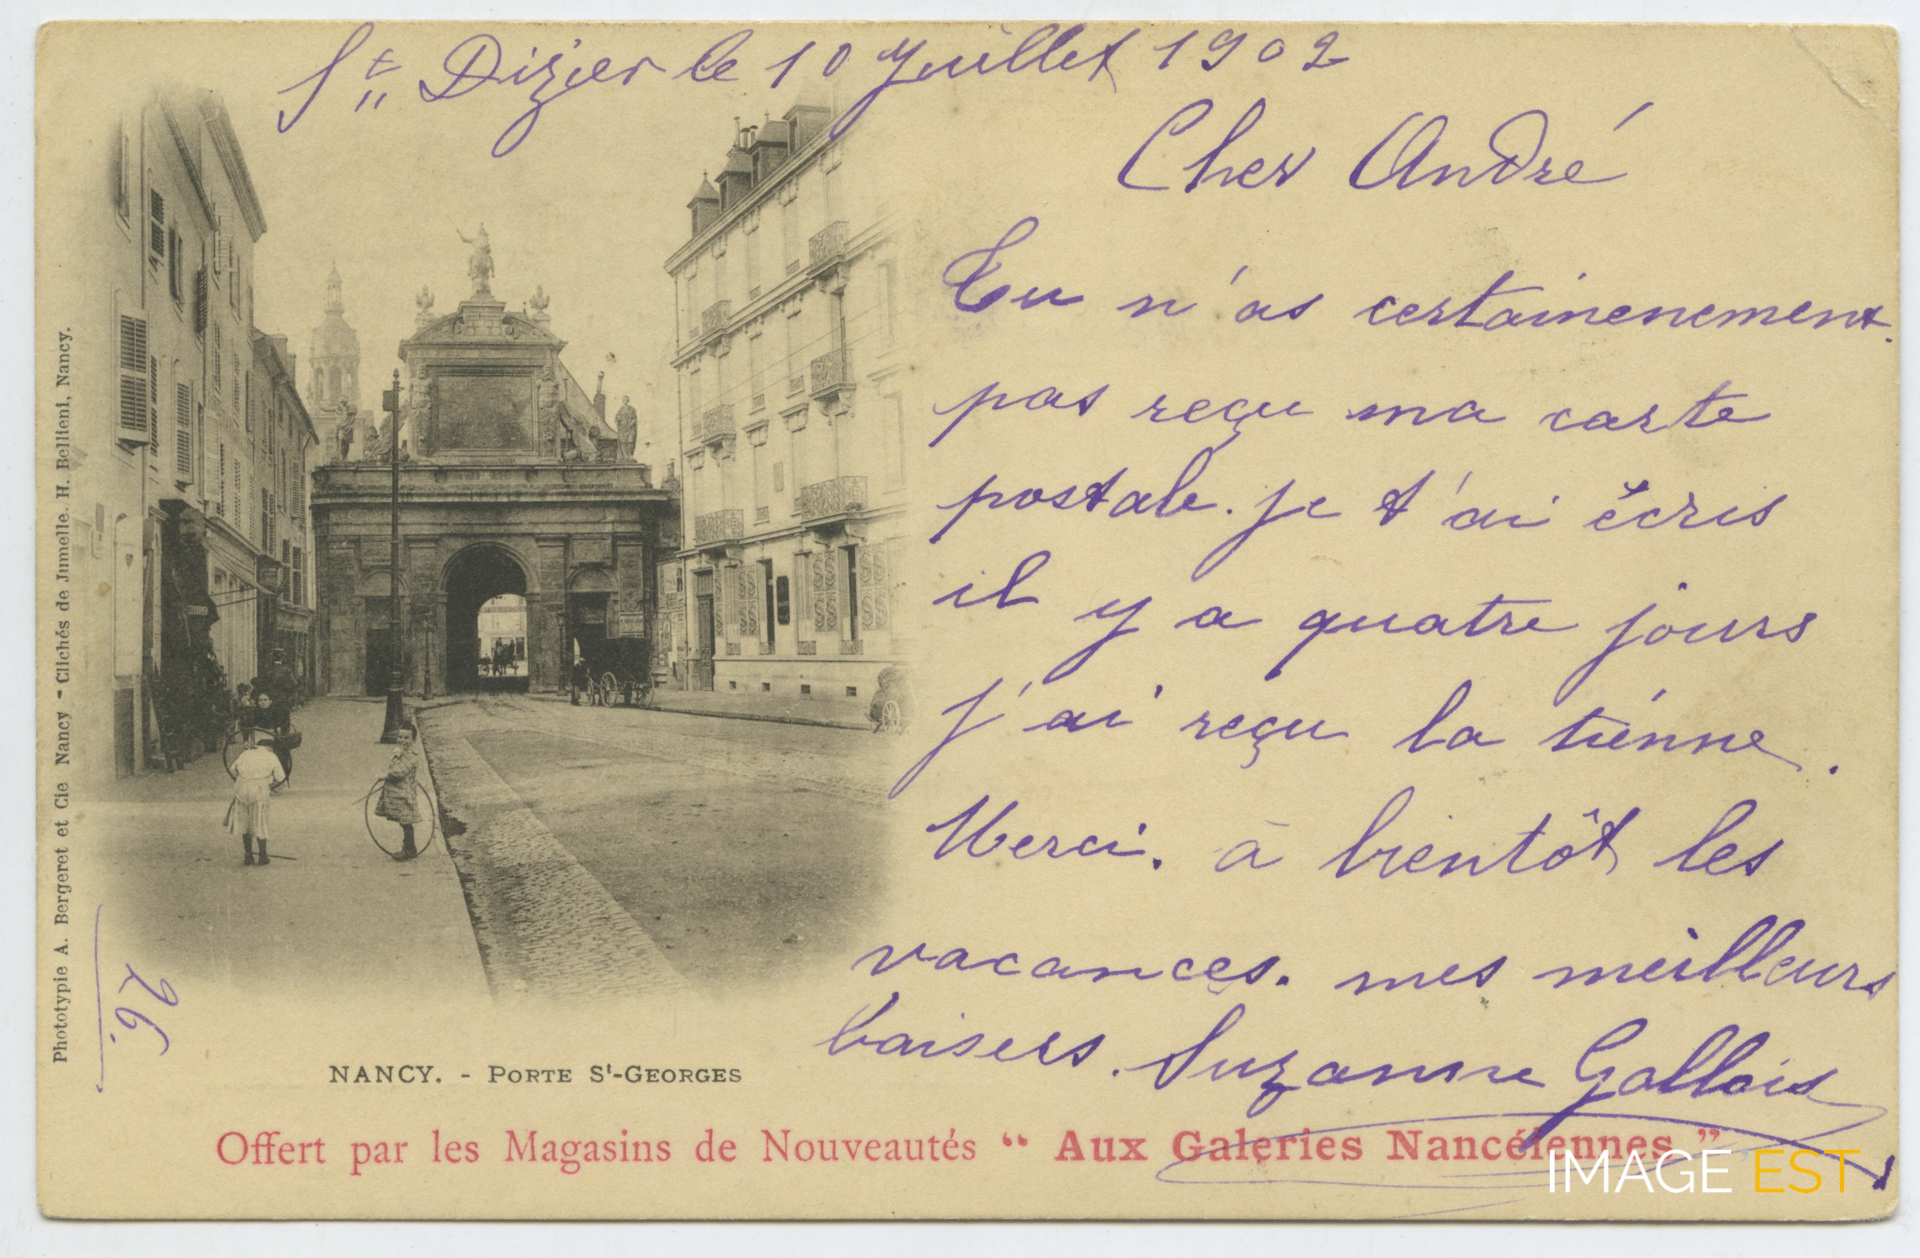 St Dizier le 10 Juillet 1902
Cher André
Tu n'as certainenement
pas reçu ma carte
postale. je t'ai écris
il y a quatre jours
j'ai reçu la tienne.
Merci. à bientôt les
vacances. mes meilleurs
baisers. Suzanne Gallois
Phototypie A. Bergeret et Cie Nancy - Clichés de Jumelle. H. Bellieni, Nancy.
26.
NANCY. - PORTE St-GEORGES
Offert par les Magasins de Nouveautés “ Aux Galeries Nancéiennes ”
IMAGE EST